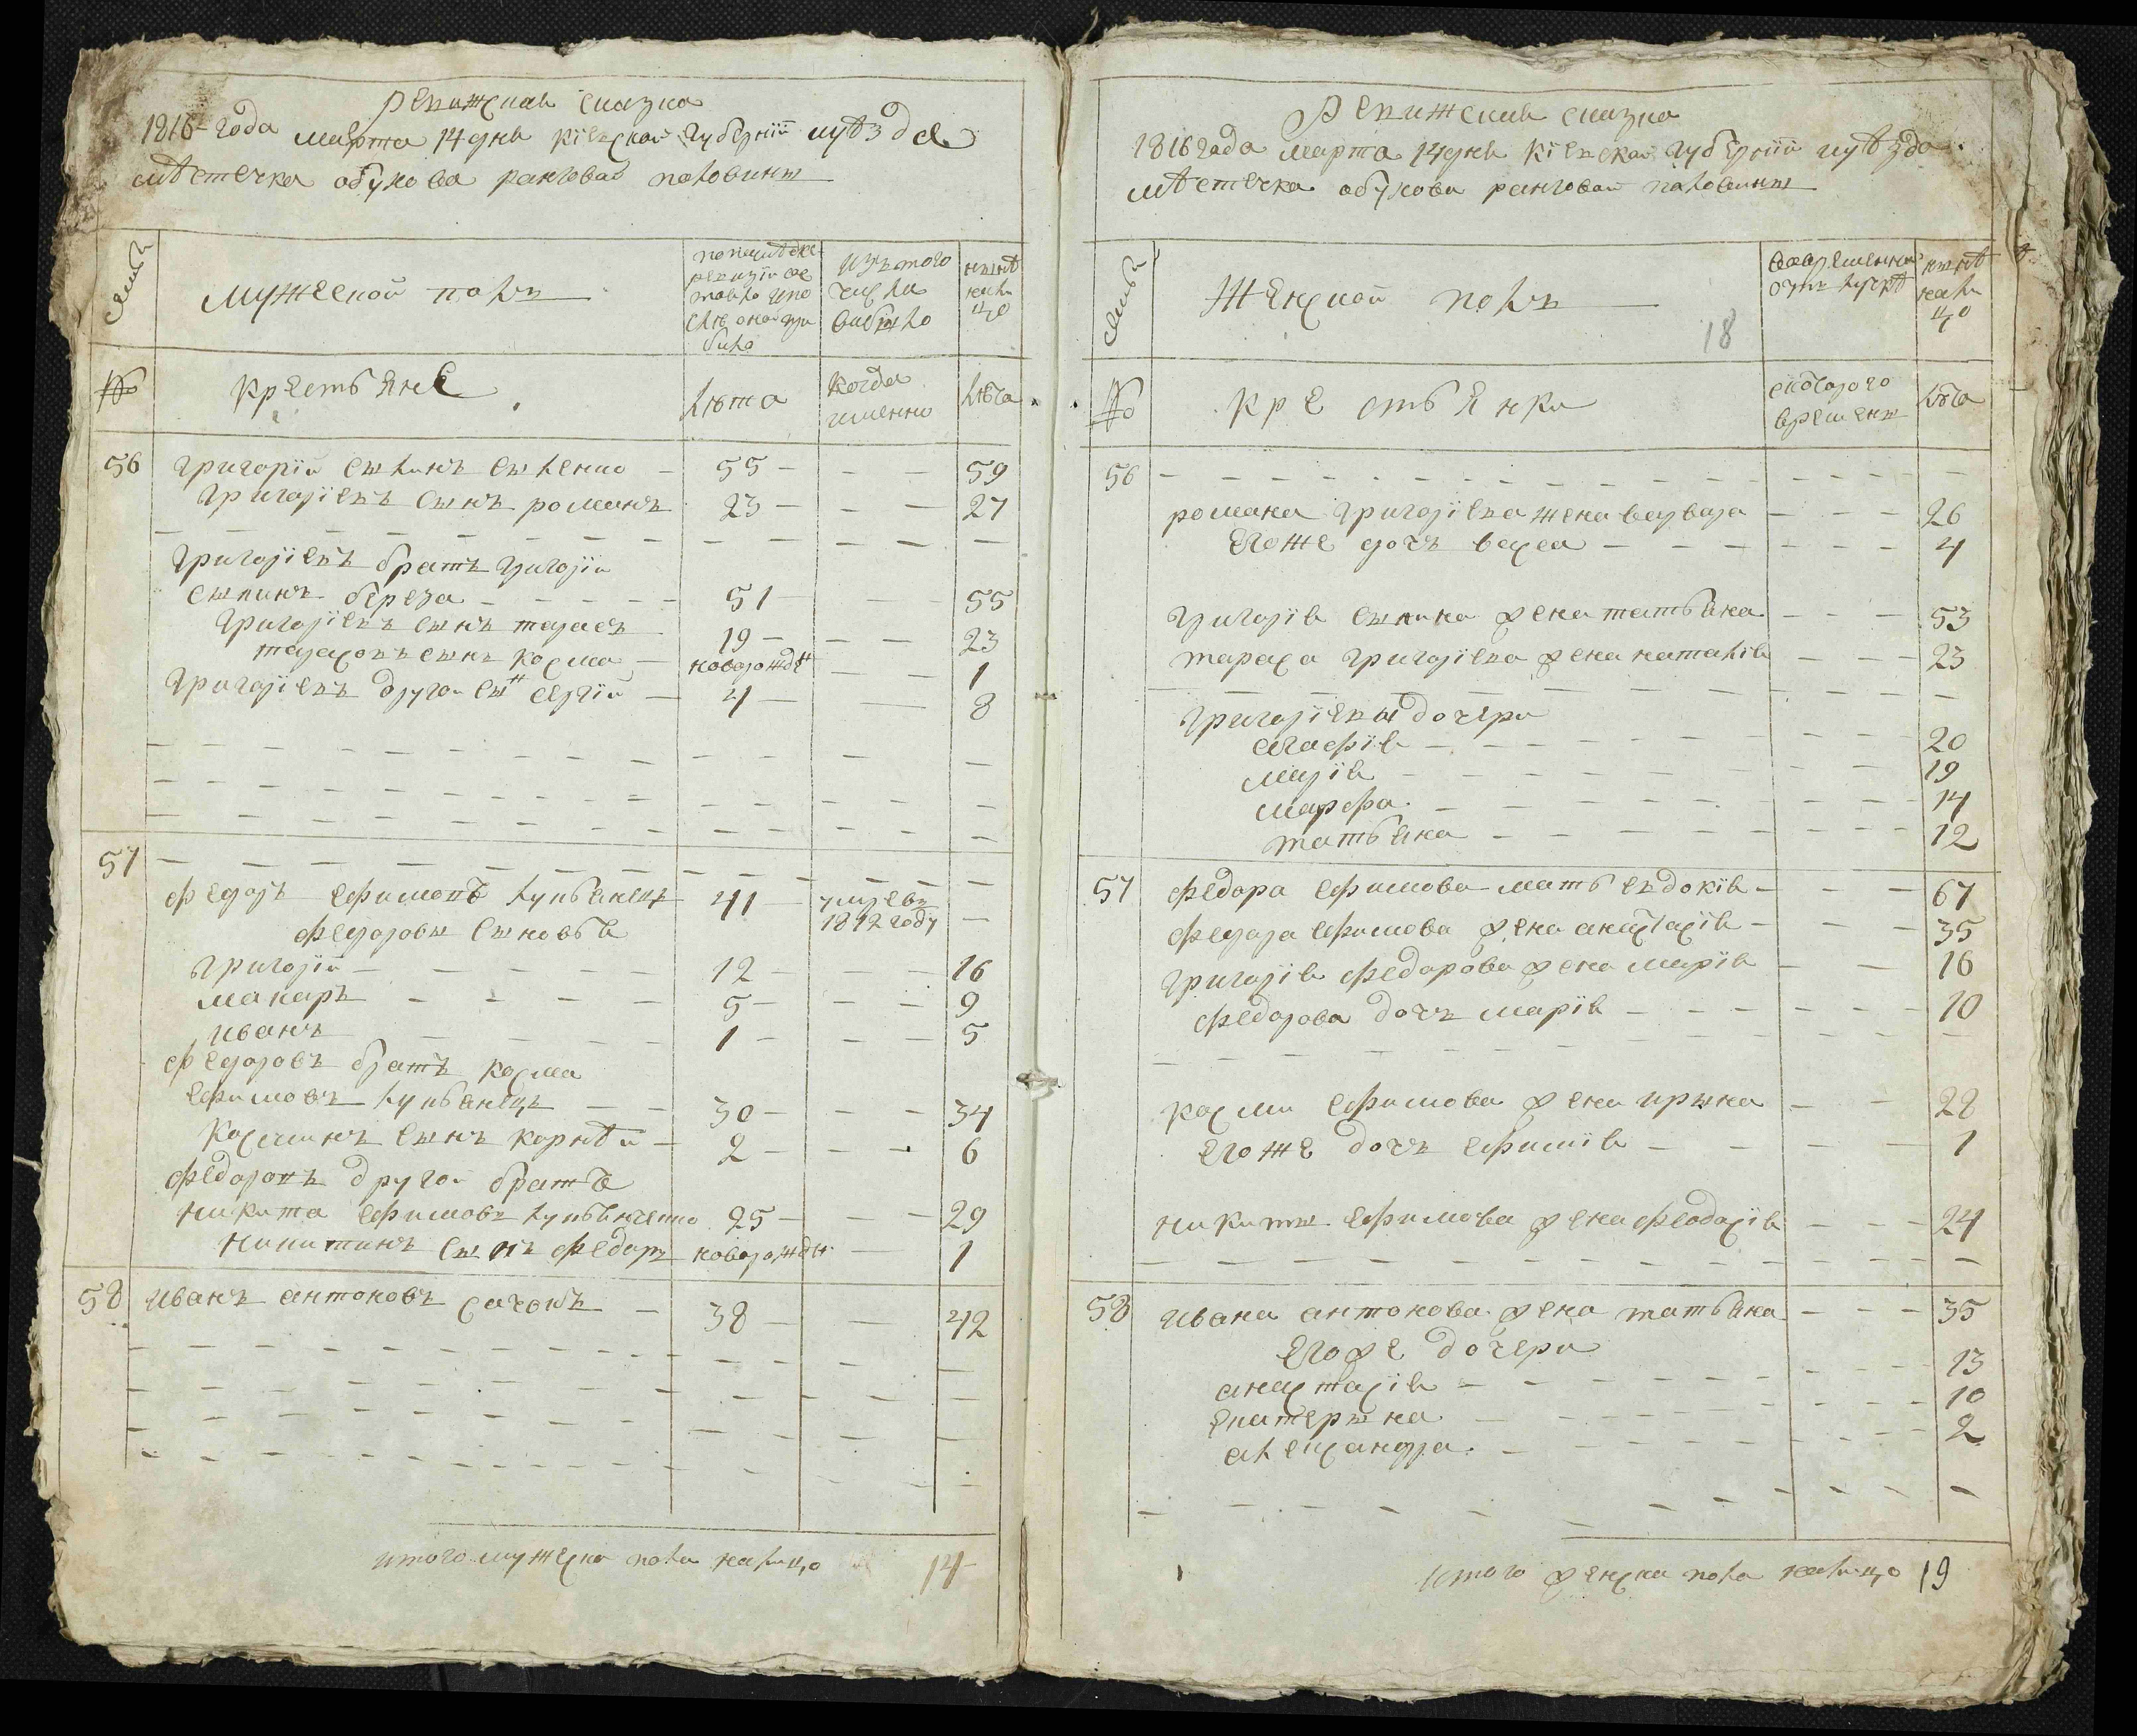 Ревижская сказка
1816 года марта 14 дня Кіевской губерніи и уѣзда
мѣстечка обухова ранговой половины
семьи
Мужеской полъ
по послѣдней
ревизіи со
стояло и по
слѣ оной при
было
изъ того
числа
выбыло
нынѣ
на ли
цо
№
Крестьяне
Лѣта
Когда
именно
Лѣта
56
Григорій 55 — — — 59
Григоріевъ сынъ романъ 23 — — — 27
Григоріевъ братъ Григорій
береза 51 — — 55
Григоріевъ сынъ тарасъ 19 — — — 23
тарасовъ сынъ косма — новорожден — — 1
Григоріевъ другой сын сергій — 4 — — 8
57
федоръ ефимовъ 41 умре въ 1812 году —
федоровы сыновья
Григорій — 12 — 16
макаръ — 5 — — — 9
иванъ 1 — — — 5
федоровъ братъ косма
ефимовъ 30 — — — 34
косминъ сынъ корнѣй — 2 — — — 6
федоровъ другой братъ
никита ефимовъ 25 — — — 29
никитинъ сынъ федоръ новорожден — 1
58 иванъ антоновъ сачокъ — 38 — — 42
итого мужска пола налицо 14
Ревижская сказка
1816 года марта 14 дня Кіевской губерніи и уѣзда
мѣстечка обухова ранговой половины
семьи
Женской полъ
18
во временной
отлучкѣ
нынѣ
на ли
цо
№
Крестьянки
съ которого
времени
Лѣта
56
романа Григоріева жена варвара — — — 26
его же дочь васса — — — 4
Григорія жена татьяна — — — 53
тараса Григоріева жена наталія — — — 23
Григоріевы дочери
агафія — 20
марія — 19
марфа — 14
татьяна — 12
57 федора ефимова мать евдокія — — — 67
федора ефимова жена анастасія — — — 35
Григорія федорова жена марія — — 16
федорова дочь марія — 10
косми ефимова жена ирына — — 22
его же дочь ефимія — 1
никиты ефимова жена феодосія — — — 24
58 ивана антонова жена татьяна — — — 35
его же дочери
анастасія — 13
екатерына — 10
александра — 2
Итого женска пола налицо 19